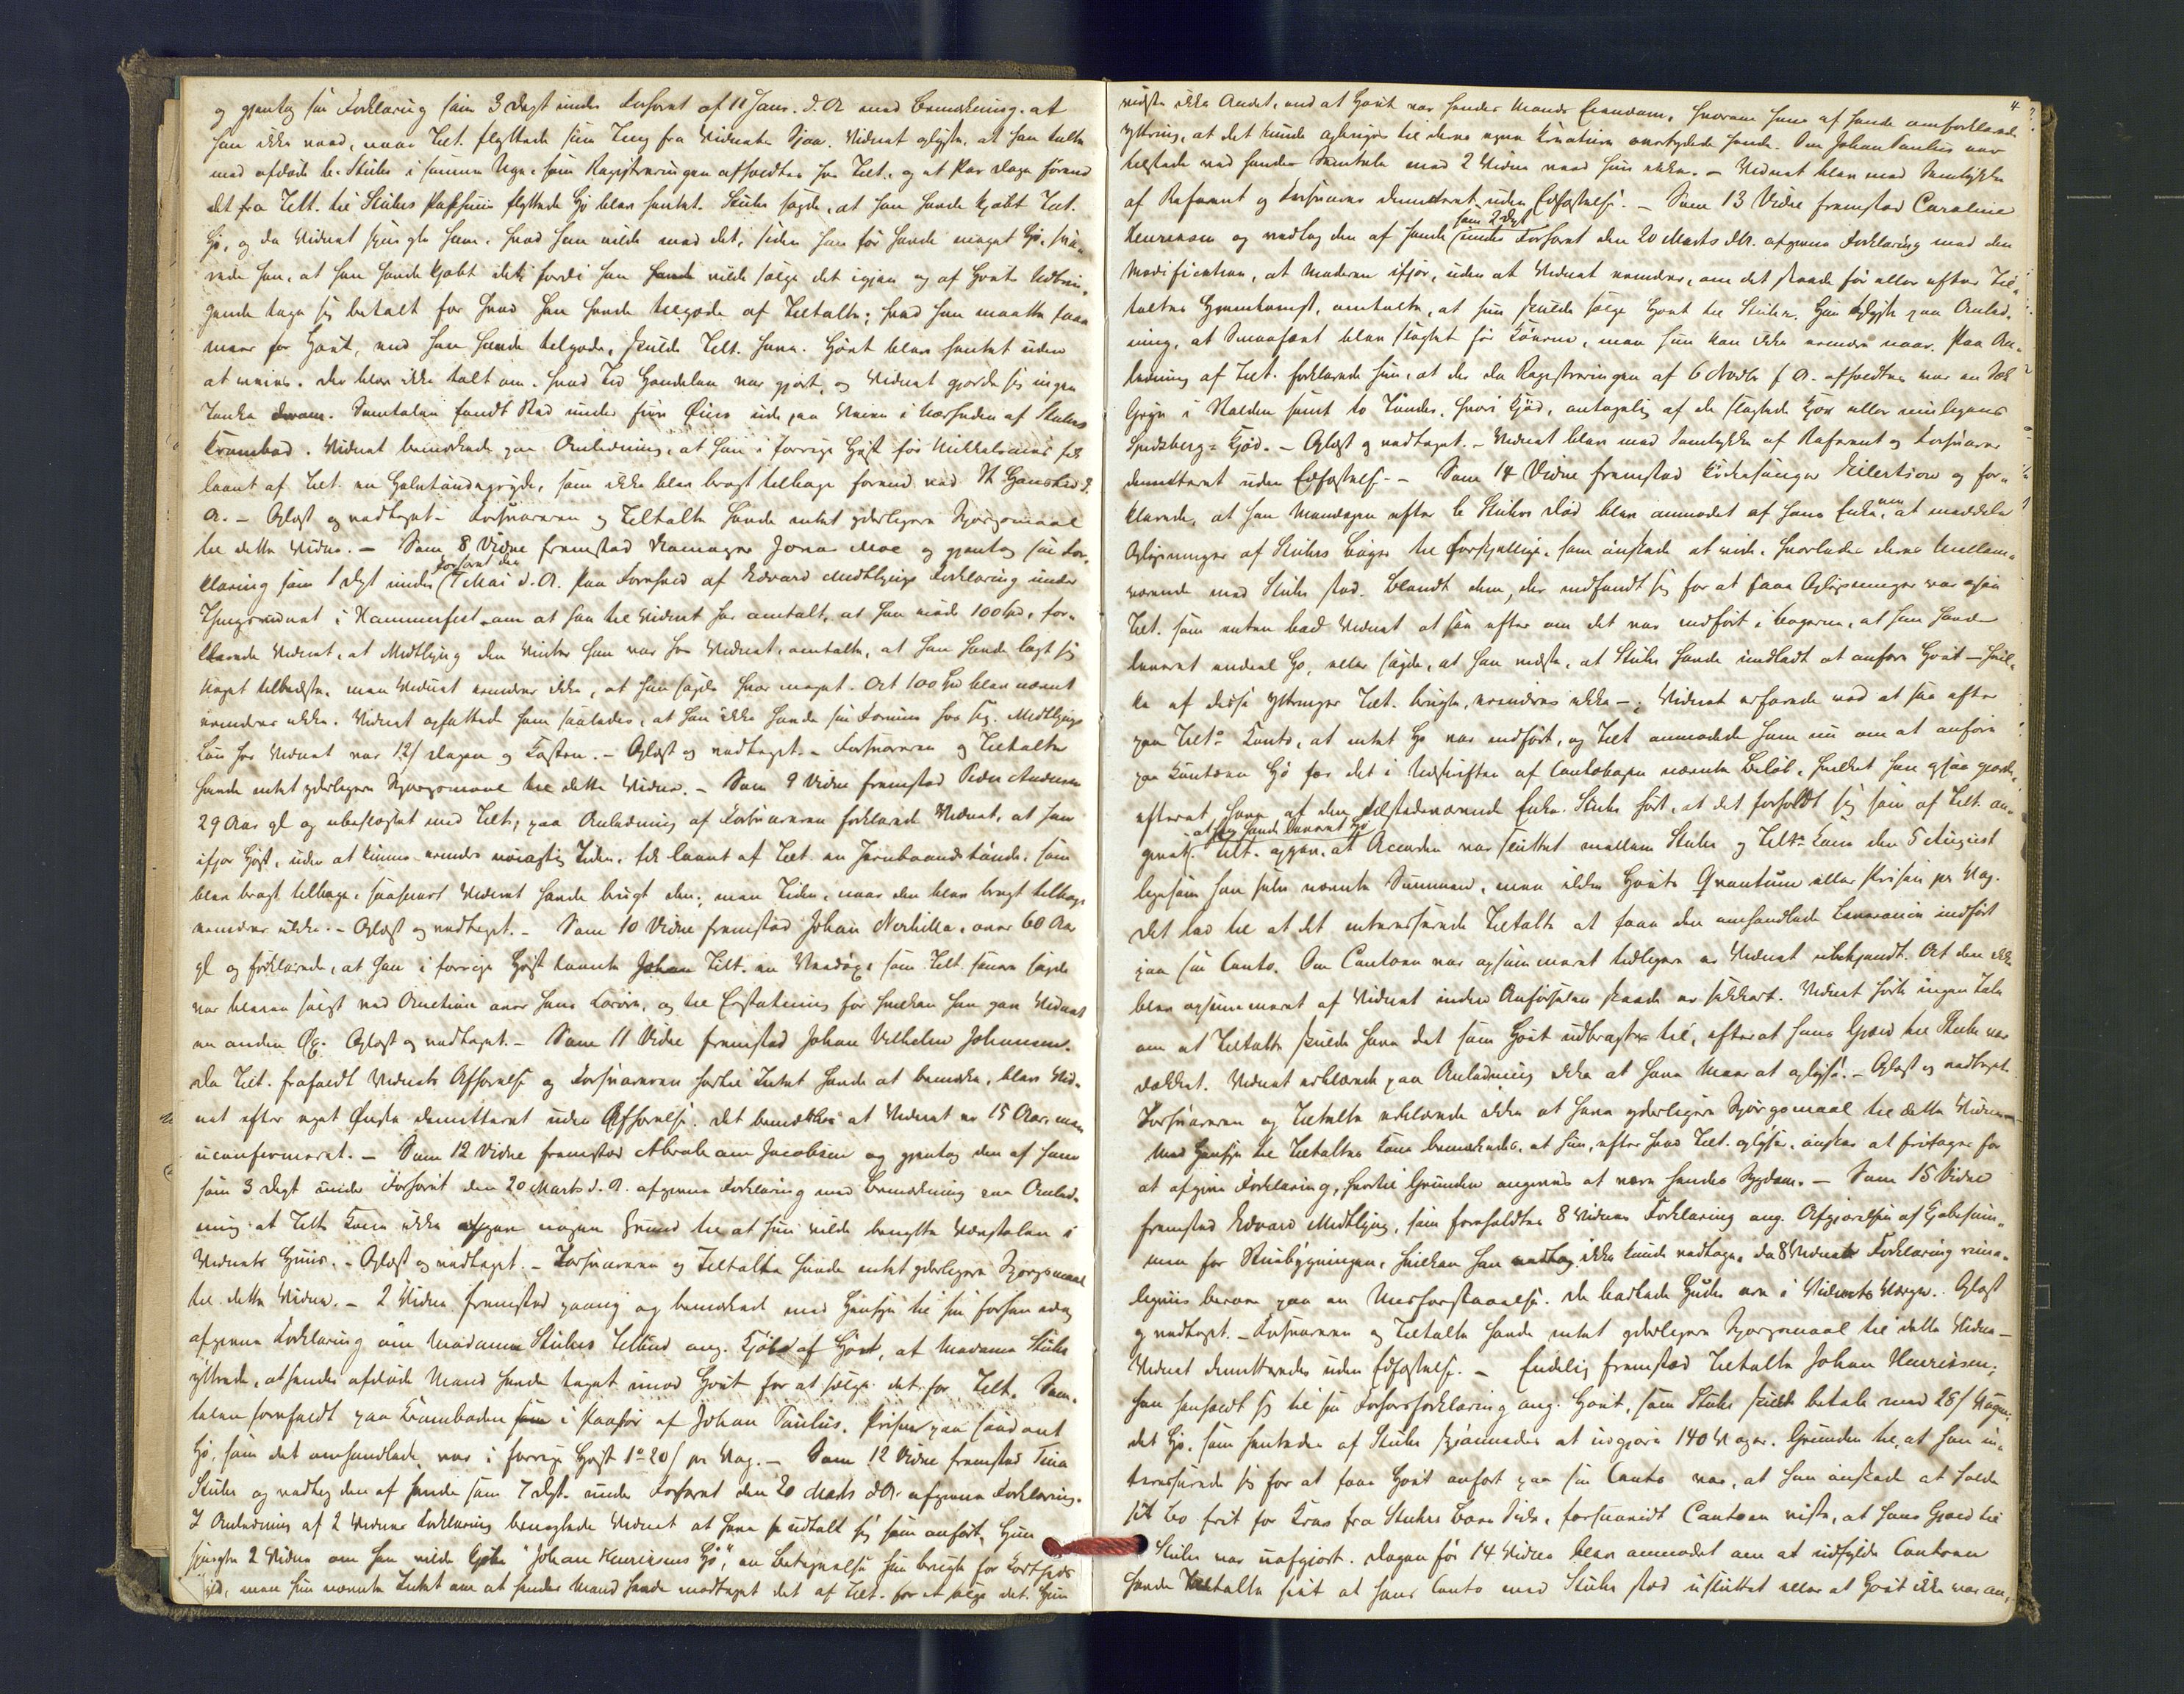 og gjentog sin Forklaring som 3 Dept under Forhøret af 11 Janr. d. A. med Bemærkning, at
han ikke veed, naar Tilt. flyttede sine Ting fra Vidnets Sjaa. Vidnet oplyste, at han talte
med afdøde L. Stuhr i samme Uge, som Registreringen afholdtes hos Tilt., og et Par Dage førend
det fra Tilt. til Stuhrs Pakhuus flyttede Hø blev hentet. Stuhr sagde, at han havde kjøbt Tilt.
Hø, og da Vidnet spurgte ham, hvad han vilde med det, siden han før havde meget Hø, sva-
rede han, at han havde kjøbt det, fordi han vilde sælge det igjen og af Høets Udbrin-
gende tage sig betalt for hvad han havde tilgode af Tiltalte; hvad han maatte faae
meer for Høet, end han havde tilgode, skulde Tilt. have. Høet blev hentet uden
at veies. Der blev ikke talt om, hvad Tid Handelen var gjort, og Vidnet gjorde sig ingen
Tanke derom. Samtalen fandt Sted under fire Øine ude paa Veien i Nærheden af Stuhrs
Krambod. Vidnet bemærkede paa Anledning, at han i forrige Høst før Mikkelsmis fik
laant af Tilt. en Halvtøndegryde, som ikke blev bragt tilbage førend ved St. Hanstid d.
A. – Oplæst og vedtaget. Forsvareren og Tiltalte havde intet yderligere Spørgsmaal
til dette Vidne. – Som 8 Vidne fremstod Skomager Jona Moe og gjentog sin For-
klaring som 1 Dept under Forhøret den 7 Mai d. A. Paa Forehold af Edvard Midtbyigs Forklaring under
Thingsvidnet i Hammerfest om at han til Vidnet har omtalt, at han eiede 100 Spd, for-
klarede Vidnet, at Midtbyig den Vinter han var hos Vidnet, omtalte, at han havde lagt sig
Noget tilbedste, men Vidnet erindrer ikke, at han sagde hvor meget. At 100 Spd blev nævnt
erindres ikke. Vidnet opfattede ham saaledes, at han ikke havde sin Formue hos sig. Midtbyigs
Løn hos Vidnet var 12 s Dagen og Kosten. – Oplæst og vedtaget. – Forsvareren og Tiltalte
havde intet yderligere Spørgsmaal til dette Vidne. – Som 9 Vidne fremstod Peder Andersen
29 Aar gl og ubeslægtet med Tilt.; paa Anledning af Forsvareren forklarede Vidnet, at han
ifjor Høst, uden at kunne erindre nøiagtig Tiden, fik laant af Tilt. en Jernbaandstønde, som
blev bragt tilbage, saasnart Vidnet havde brugt den; men Tiden, naar den blev bragt tilbage
erindres ikke. – Oplæst og vedtaget. – Som 10 Vidne fremstod Johan Norhilla, over 60 Aar
gl og forklarede, at han i forrige Høst laante Tilt. en Vedøxe, som Tilt. senere sagde
var bleven solgt ved Auction over hans Løsøre, og til Erstatning for hvilken han gav Vidnet
en anden Øx. Oplæst og vedtaget. – Som 11 Vidne fremstod Johan Vilhelm Johansen.
Da Tilt. frafaldt Vidnets Afhørelse og Forsvareren hertil Intet havde at bemærke, blev Vid-
net efter eget Ønske demitteret uden Afhørelse. Det bemærkes at Vidnet er 15 Aar, men
uconfirmeret. – Som 12 Vidne fremstod Abraham Jacobsen og gjentog den af ham
som 3 Dept under Forhøret den 20 Marts d. A. afgivne Forklaring med Bemærkning paa Anled-
ning at Tilts Kone ikke opgav nogen Grund til at hun vilde benytte Vævstolen i
Vidnets Huus. – Oplæst og vedtaget. – Forsvareren og Tiltalte havde intet yderligere Spørgsmaal
til dette Vidne. – 2 Vidne fremstod paany og bemærkede med Hensyn til sin forhen idag
afgivne Forklaring om Madame Stuhrs Tilbud ang. Kjøb af Høet, at Madame Stuhr
yttrede, at hendes afdøde Mand havde taget imod Høet for at sælge det for Tilt. Sam-
talen forefaldt paa Kramboden i Paahør af Johan Paulus. Prisen paa saadant
Hø, som det omhandlede, var i forrige Høst 1 – 20 s pr Vog. – Som 12 Vidne fremstod Tina
Stuhr og vedtog den af hende som 7 Dept. under Forhøret den 20 Marts d.A. afgivne Forklaring.
I Anledning af 2 Vidnes Forklaring benegtede Vidnet at have udtalt sig som anført. Hun
spurgte 2 Vidne om han vilde kjøbe "Johan Henriksens Hø", en Betegnelse hun brugte for Kortheds
Skyld, men hun nævnte Intet om at hendes Mand havde modtaget det af Tilt. for at sælge det. Hun
4
vidste ikke Andet, end at Høet var hendes Mands Eiendom, hvorom hans af hende omforklarede
Yttring, at det kunde afbringes til deres egne Kreaturer overbeviste hende. Om Johan Paulus var
tilstede ved hendes Samtale med 2 Vidne veed hun ikke. – Vidnet blev med Samtykke
af Referent og Forsvarer demitteret uden Edfæstelse. – Som 13 Vidne fremstod Caroline
Henriksen og vedtog den af hende som 2 Dept under Forhøret den 20 Marts d.A. afgivne Forklaring med den
Modification, at Moderen ifjor, uden at Vidnet erindrer, om det skeede før eller efter Til-
taltes Hjemkomst, omtalte, at hun skulde sælge Høet til Stuhr. Hun oplyste paa Anled-
ning, at Smaafæet blev slagtet før Køerne, men hun kan ikke erindre naar. Paa An-
ledning af Tilt. forklarede hun, at der da Registreringen af 6 Novbr f. A. afholdtes var en Sæk
Gryn i Stalden samt to Tønder, hvori Kjød, antagelig af de slagtede Kjør eller muligens
Spidsberg-Kjød. – Oplæst og vedtaget. – Vidnet blev med Samtykke af Referent og Forsvarer
demitteret uden Edfæstelse. – Som 14 Vidne fremstod Kirkesanger Eilertsen og for-
klarede, at han Mandagen efter L. Stuhrs Død blev anmodet af hans Enke om at meddele
Oplysninger af Stuhrs Bøger til Forskjellige, som ønskede at vide, hvorledes deres Mellem-
værende med Stuhr stod. Blandt dem, der indfandt sig for at faae Oplysninger var ogsaa
Tilt. som enten bad Vidnet at see efter om det var indført i bøgerne, at han havde
leveret endeel Hø, eller sagde, at han vidste, at Stuhr havde undladt at anføre Høet – hvil-
ke af disse Yttringer Tilt. brugte, erindres ikke –; Vidnet erfarede ved at see efter
paa Tilts Conto, at intet Hø var indført, og Tilt anmodede ham nu om at anføre
paa Contoen Hø for det i Udskriften af Contobogen nævnte Beløb, hvilket han ogsaa gjorde,
efterat have af den tilstedeværende Enke Stuhr hørt, at det forholdt sig som af Tilt. an-
givet, at han havde leveret Hø. Tilt. opgav, at Accorden var sluttet mellem Stuhr og Tilts Kone den 5 August
ligesom han selv nævnte Summen, men ikke Høets Qvantum eller Prisen pr Vog.
Det lod til at det interesserede Tiltalte at faae den omhandlede Leverance indført
paa sin Conto. Om Contoen var opsummeret tidligere er Vidnet ubekjendt. At den ikke
blev opsummeret af Vidnet inden Anførselen skeede er sikkert. Vidnet hørte ingen Tale
om at Tiltalte skulde have det som Høet udbragtes til, efterat hans Gjeld til Stuhr var
dækket. Vidnet erklærede paa Anledning ikke at have Meer at oplyse. – Oplæst og vedtaget.
Forsvareren og Tiltalte erklærede ikke at have yderligere Spørgsmaal til dette Vidne –
Med Hensyn til Tiltaltes Kone bemærkedes, at hun, efter hvad Tilt. oplyste, ønsker at fritages for
at afgive Forklaring, hvortil Grunden angives at være hendes Sygdom. – Som 15 Vidne
fremstod Edvard Midtbyig, som foreholdtes 8 Vidnes Forklaring ang. Afgjørelsen af Kjøbesum-
men for Skuebygningen, hvilken han ikke kunde vedtage, da 8 Vidnets Forklaring rime-
ligviis beroer paa en Misforstaaelse. De badtede Huder ere i Vidnets Værge. Oplæst
og vedtaget. – Forsvareren og Tiltalte havde intet yderligere Spørgsmaal til dette Vidne –
Vidnet demitteredes uden Edfæstelse. – Endelig fremstod Tiltalte Johan Henriksen;
han henholdt sig til sin Forhørsforklaring ang. Høet, som Stuhr skulde betale med 28 s Vogen;
det Hø, som hentedes af Stuhr skjønnedes at udgjøre 140 Voger. Grunden til, at han in-
teresserede sig for at faae Høet anført paa sin Conto var, at han ønskede at holde
sit Bo frit for Krav fra Stuhrs Boes Side, forsaavidt Contoen viste, at hans Gjæld til
Stuhr var uafgjort. Dagen før 14 Vidne blev anmodet om at udfylde Contoen
havde Tiltalte seet at hans Conto med Stuhr stod usluttet eller at Høet ikke var an-